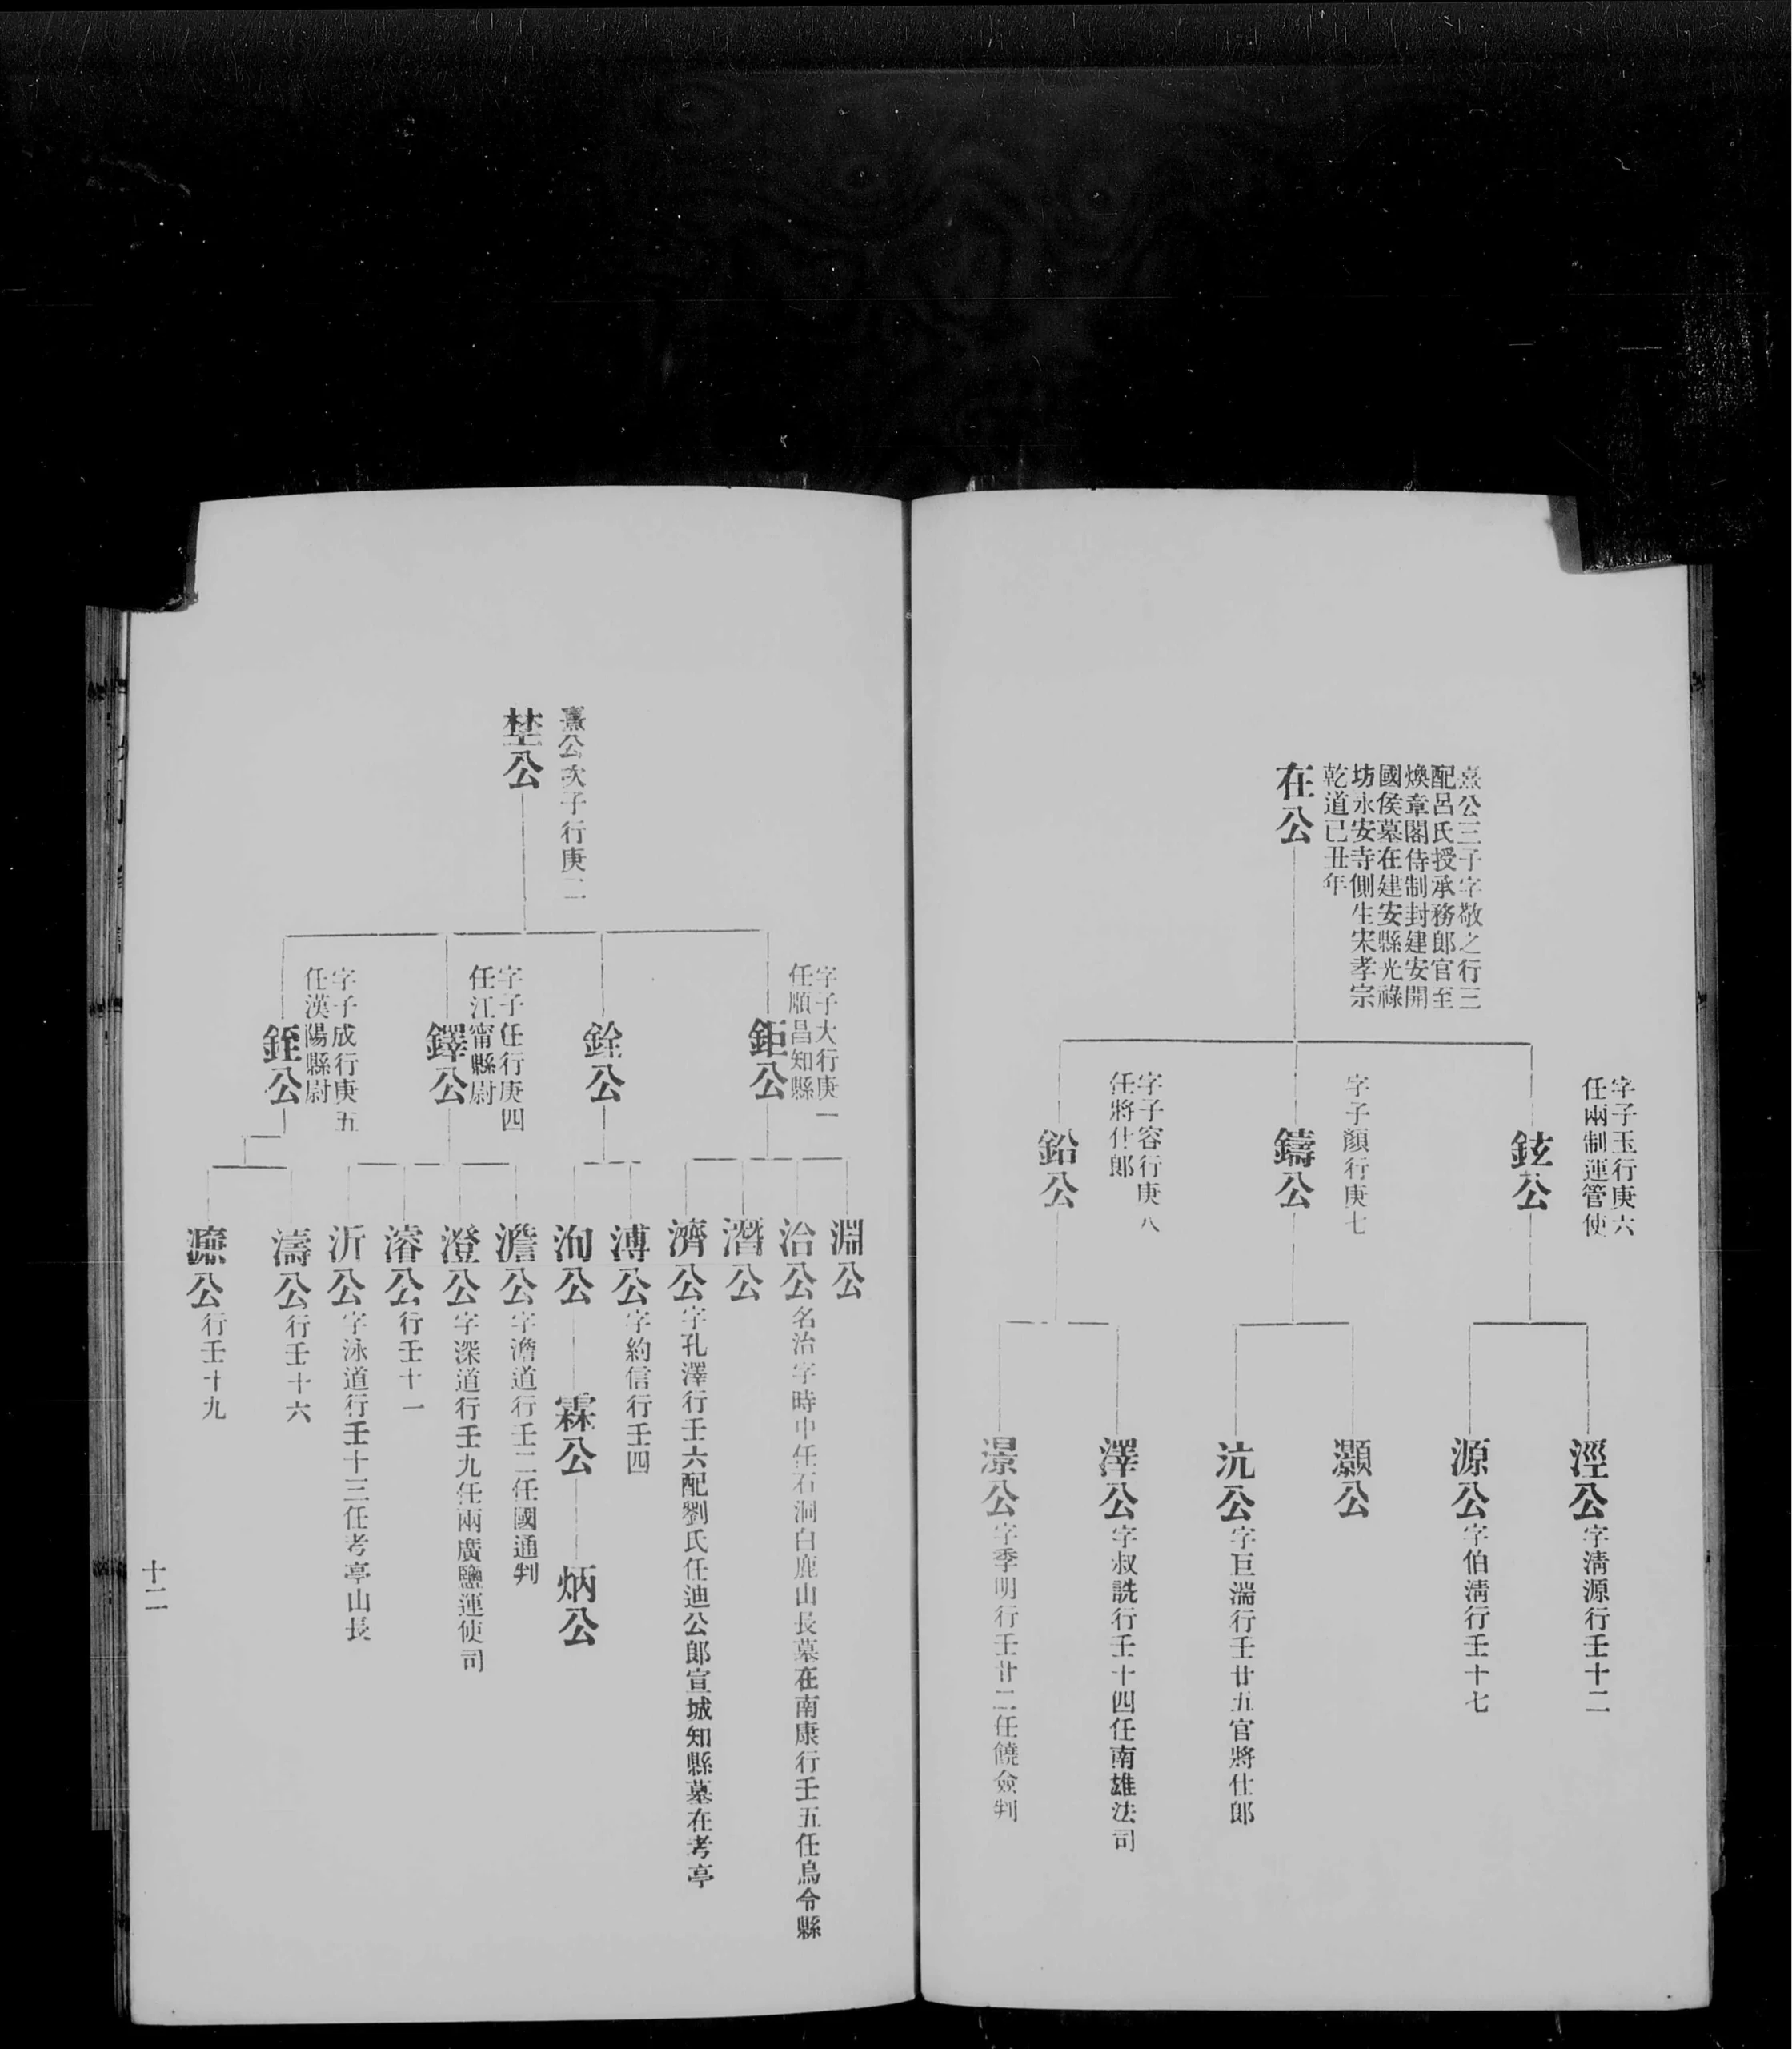 熹公三子字敬之行三
配呂氏授承務郎官至
煥章閣侍制封建安開
國侯墓在建安縣光祿
坊永安寺側生宋孝宗
乾道己丑年
在公
字子玉行庚六
任兩制運管使
鉉公
字子顏行庚七
鑄公
字子容行庚八
任將仕郎
鉛公
涇公字淸源行壬十二
源公字伯淸行壬十七
灝公
沆公字巨湍行壬廿五官將仕郎
澤公字叔詵行壬十四任南雄法司
澋公字季明行壬廿二任饒僉判
熹公次子行庚二
埜公
字子大行庚一
任順昌知縣
鉅公
銓公
字子任行庚四
任江甯縣尉
鐸公
字子成行庚五
任漢陽縣尉
銍公
淵公
治公名治字時中任石洞白鹿山長墓在南康行壬五任烏令縣
潛公
濟公字孔澤行壬六配劉氏任迪公郎宣城知縣墓在考亭
溥公字約信行壬四
洵公
霖公
炳公
澹公字澹道行壬二任國通判
澄公字深道行壬九任兩廣鹽運使司
濬公行壬十一
沂公字泳道行壬十三任考亭山長
濤公行壬十六
濂公行壬十九
十二